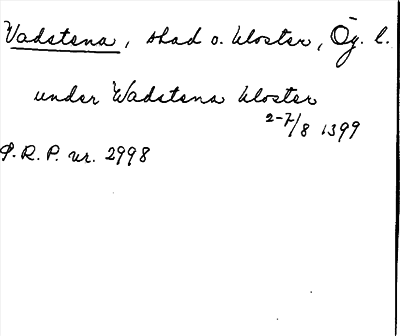 Vadstena, stad o. kloster, Ög. l.
under Wadstena kloster
2-7/8 1399
S.R.P. nr. 2998